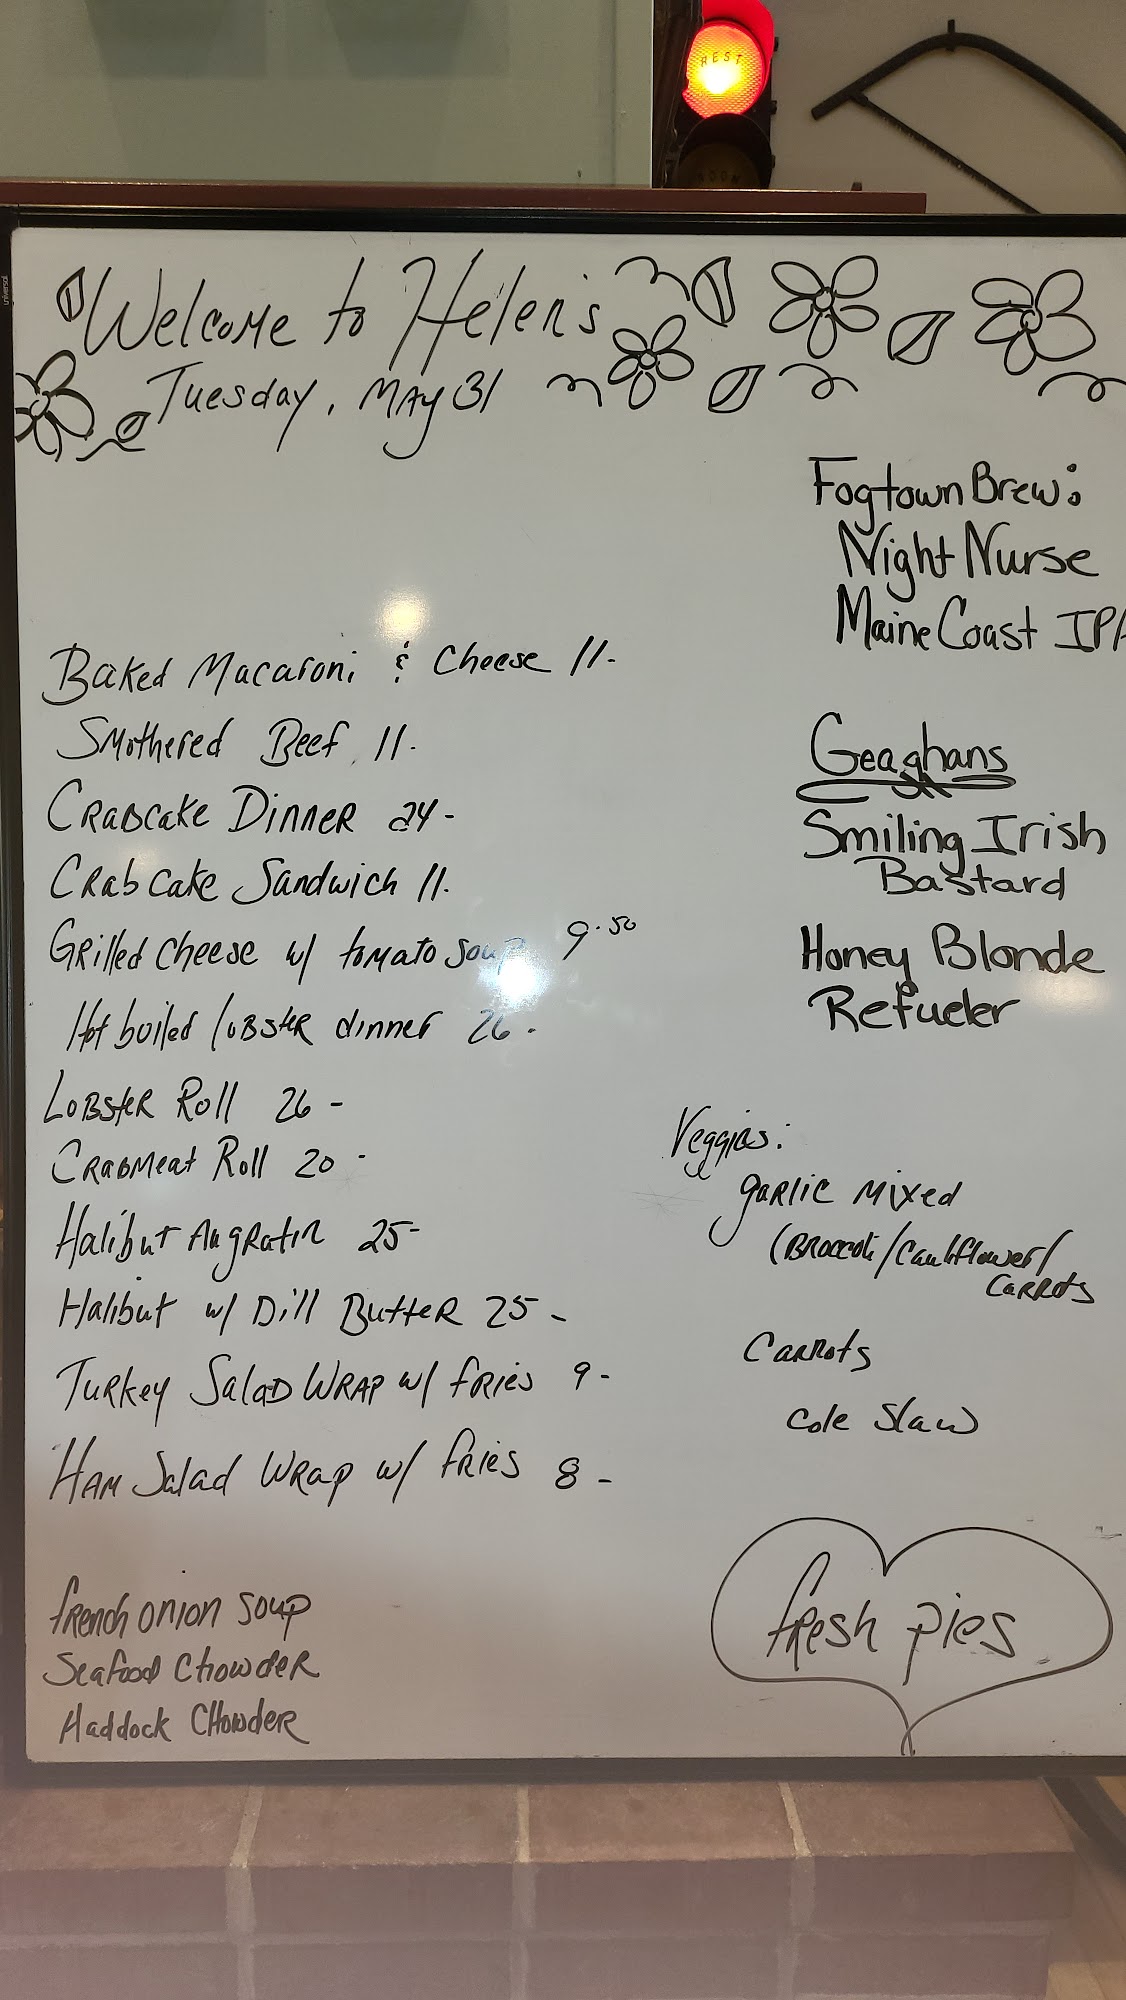 REST
ROOM
universal
Welcome to Helen's
Tuesday, May 31
Baked Macaroni & Cheese 11.
Smothered Beef 11.
Crabcake Dinner 24-
Crabcake Sandwich 11.
Grilled Cheese w/ tomato soup 9.50
Hot boiled lobster dinner 26-
Lobster Roll 26-
Crabmeat Roll 20-
Halibut Augratin 25-
Halibut w/ Dill Butter 25-
Turkey Salad Wrap w/ fries 9-
Ham Salad Wrap w/ fries 8-
french onion soup
Seafood Chowder
Haddock Chowder
Fogtown Brew:
Night Nurse
Maine Coast IPA
Geaghans
Smiling Irish
Bastard
Honey Blonde
Refueler
Veggies:
garlic mixed
(Broccoli/Cauliflower/
Carrots
Carrots
Cole Slaw
fresh pies